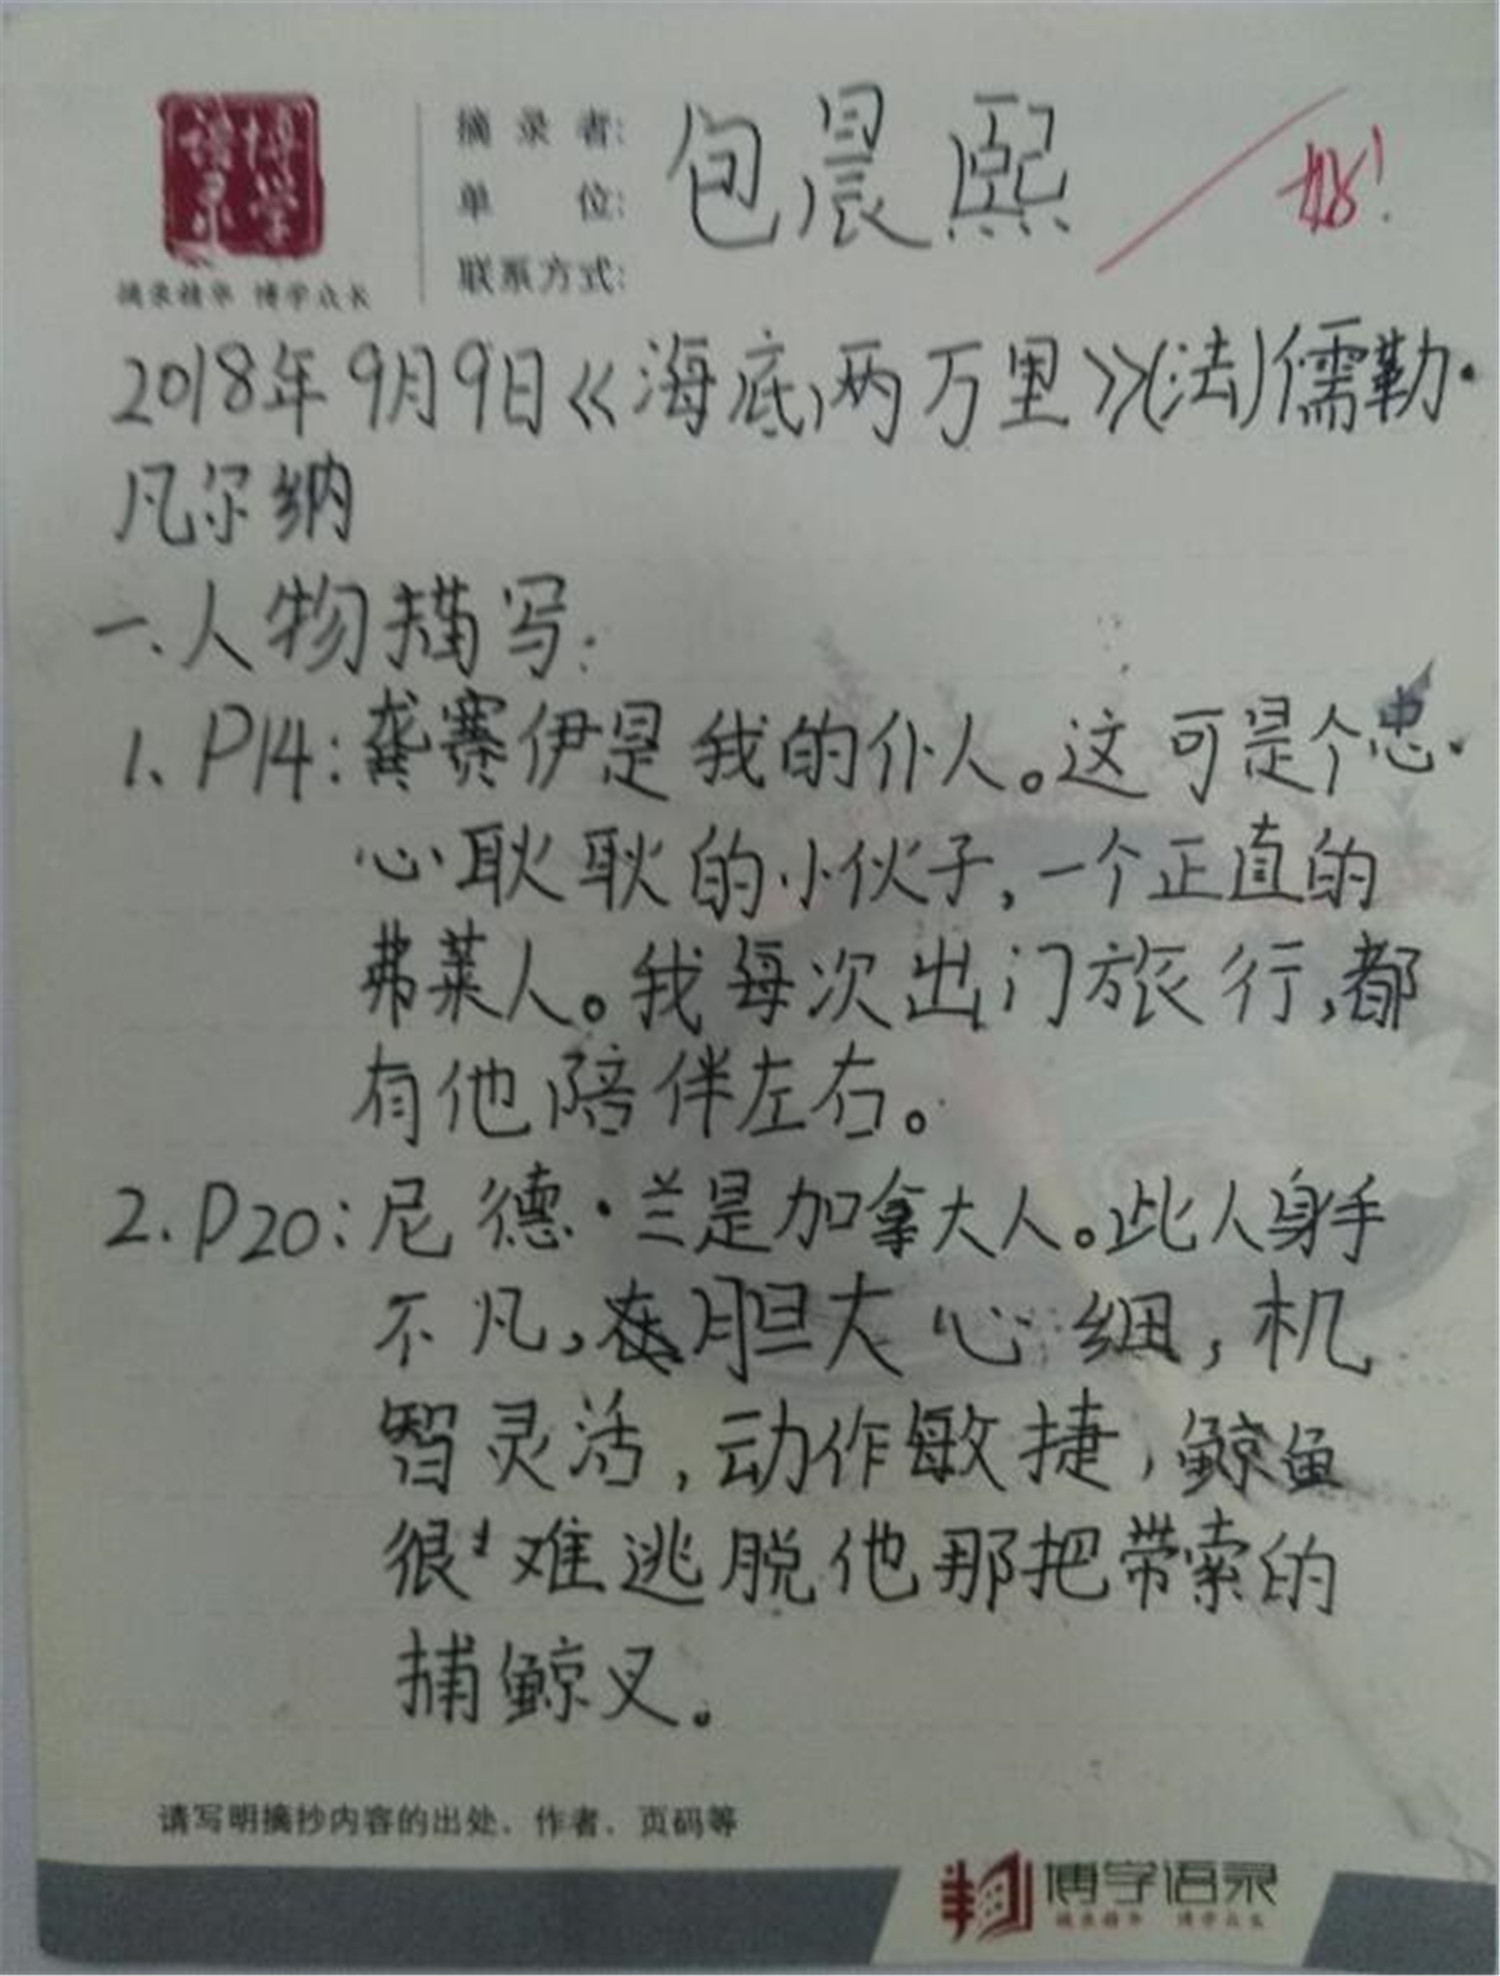 博学语录
摘录精华 博学众长
摘录者: 包晨熙
单位:
联系方式:
好!
2018年9月9日《海底两万里》(法)儒勒·
凡尔纳
一、人物描写:
1、P14:龚赛伊是我的仆人。这可是个忠
心耿耿的小伙子,一个正直的
弗莱人。我每次出门旅行,都
有他陪伴左右。
2.P20:尼德·兰是加拿大人。此人身手
不凡,胆大心细,机
智灵活,动作敏捷,鲸鱼
很难逃脱他那把带索的
捕鲸叉。
请写明摘抄内容的出处、作者、页码等
博学语录
摘录精华 博学众长